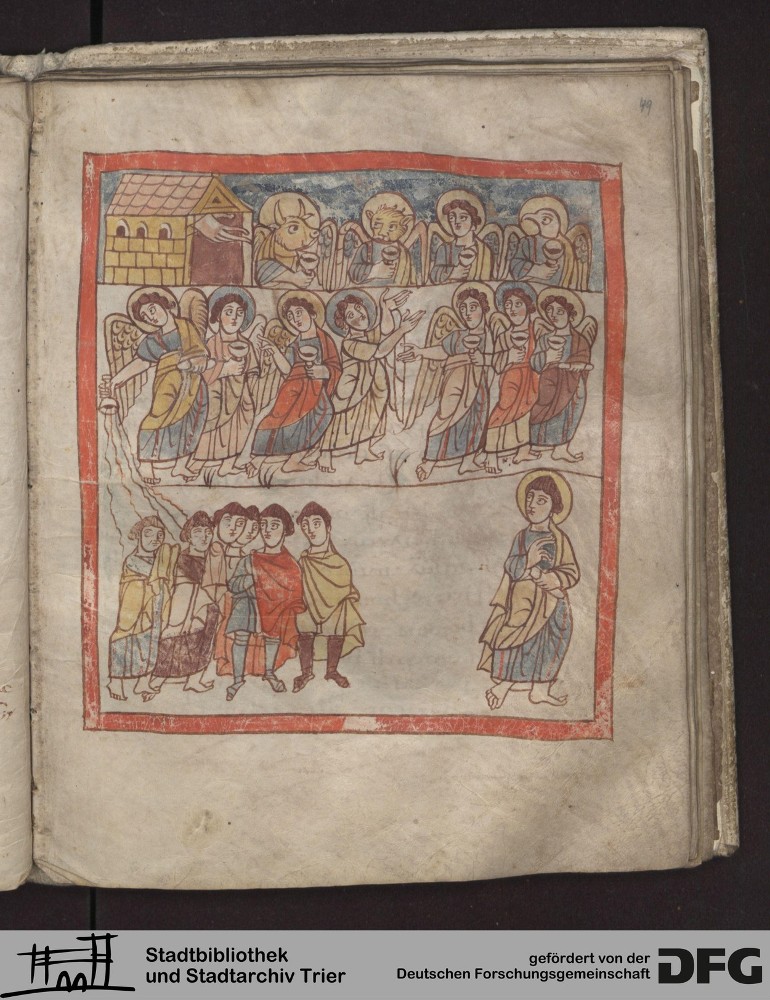 49
Stadtbibliothek
und Stadtarchiv Trier
gefördert von der
Deutschen Forschungsgemeinschaft
DFG